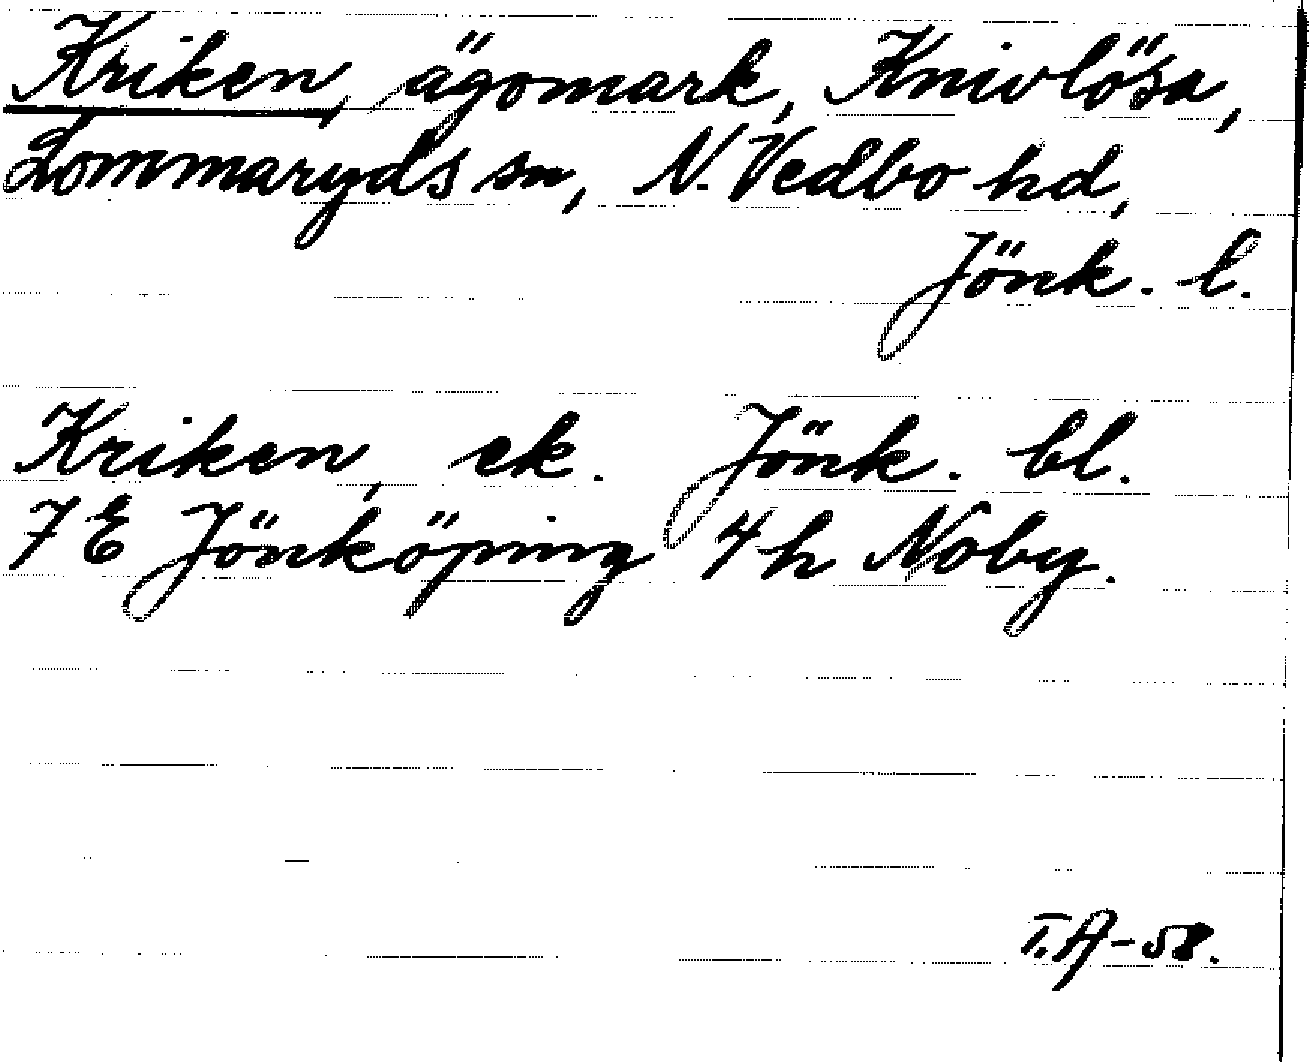 Kriken, ägomark, Knivlösa,
Lommaryds sn, N. Vedbo hd,
Jönk. l.
Kriken, ek. Jönk. bl.
7 E Jönköping 4 h Noby.
T.A-58.